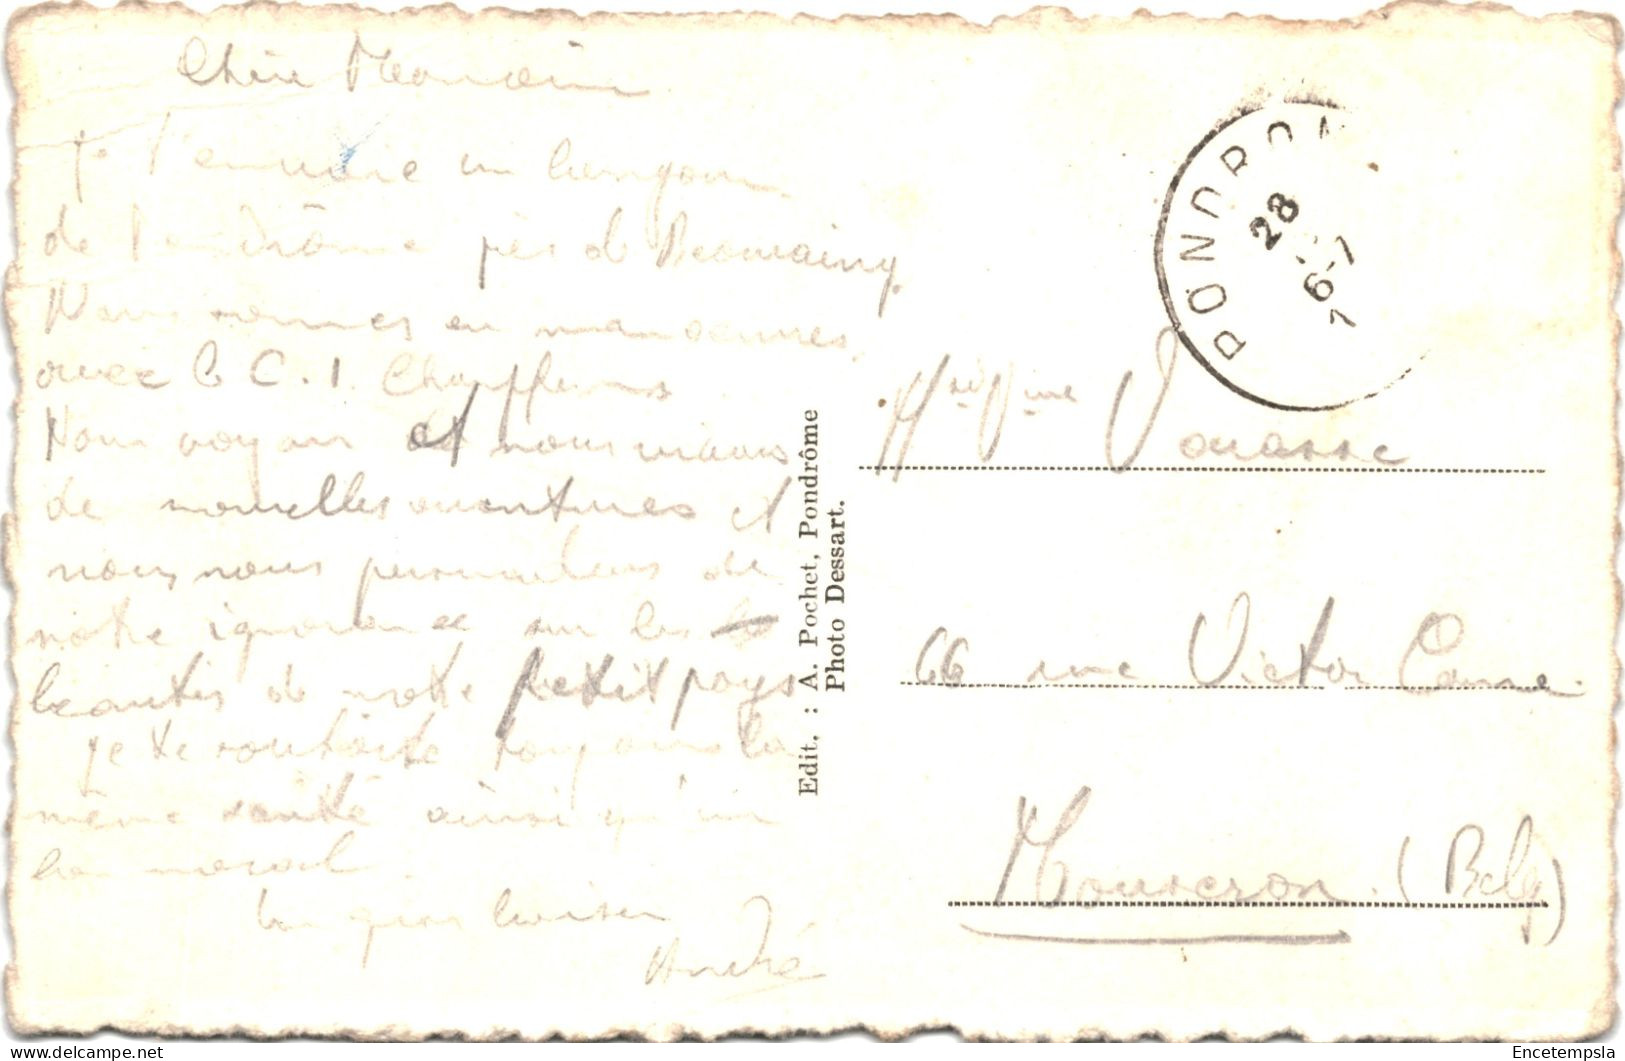 Chère Monain
Je t'envoie un bonjour
de Pondrôme près de Beauraing.
Nous sommes en manoeuvres
avec le C.I. Chauffeurs
Nous voyons et nous vivons
de nouvelles aventures et
nous nous persuadons de
notre ignorance sur les
beautés de notre petit pays
je te souhaite toujours la
même santé ainsi qu'un
bon moral.
Ton gros baiser
André
Edit. : A. Pochet, Pondrôme
Photo Dessart.
PONDROM
28
6-7
7
Vorasse
66 rue Victor
Mouscron. (Belg)
Encetempsla